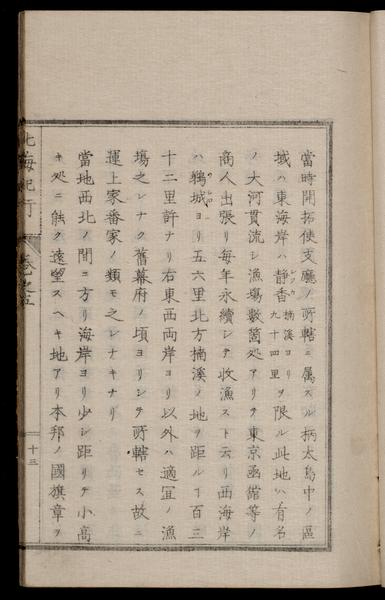 當時開拓使支廳ノ所轄ニ属スル柄太島中ノ區
域ハ東海岸ハ靜香シツカ楠溪ヨリ九十四里ヲ限ル此地ハ有名
ノ大河貫流シ漁塲數箇処アリヲ東京函館等ノ
商人出張リ每年永續シテ收漁スト云リ西海岸
ハ鵜城ウシロヨリ五六里北方楠溪ノ地ヲ距ルヿ百三
十二里許ナリ右東西両岸ヨリ以外ハ適冝ノ漁
塲之レナク舊幕府ノ頃ヨリシテ所轄セス故ニ
運上家番家ノ類モ之レナキナリ
當地西北ノ間ニ方リ海岸ヨリ少シ距リテ小高
キ処ニ能ク遠望スヘキ地アリ本邦ノ國旗章ヲ
北海紀行
卷之五
十三